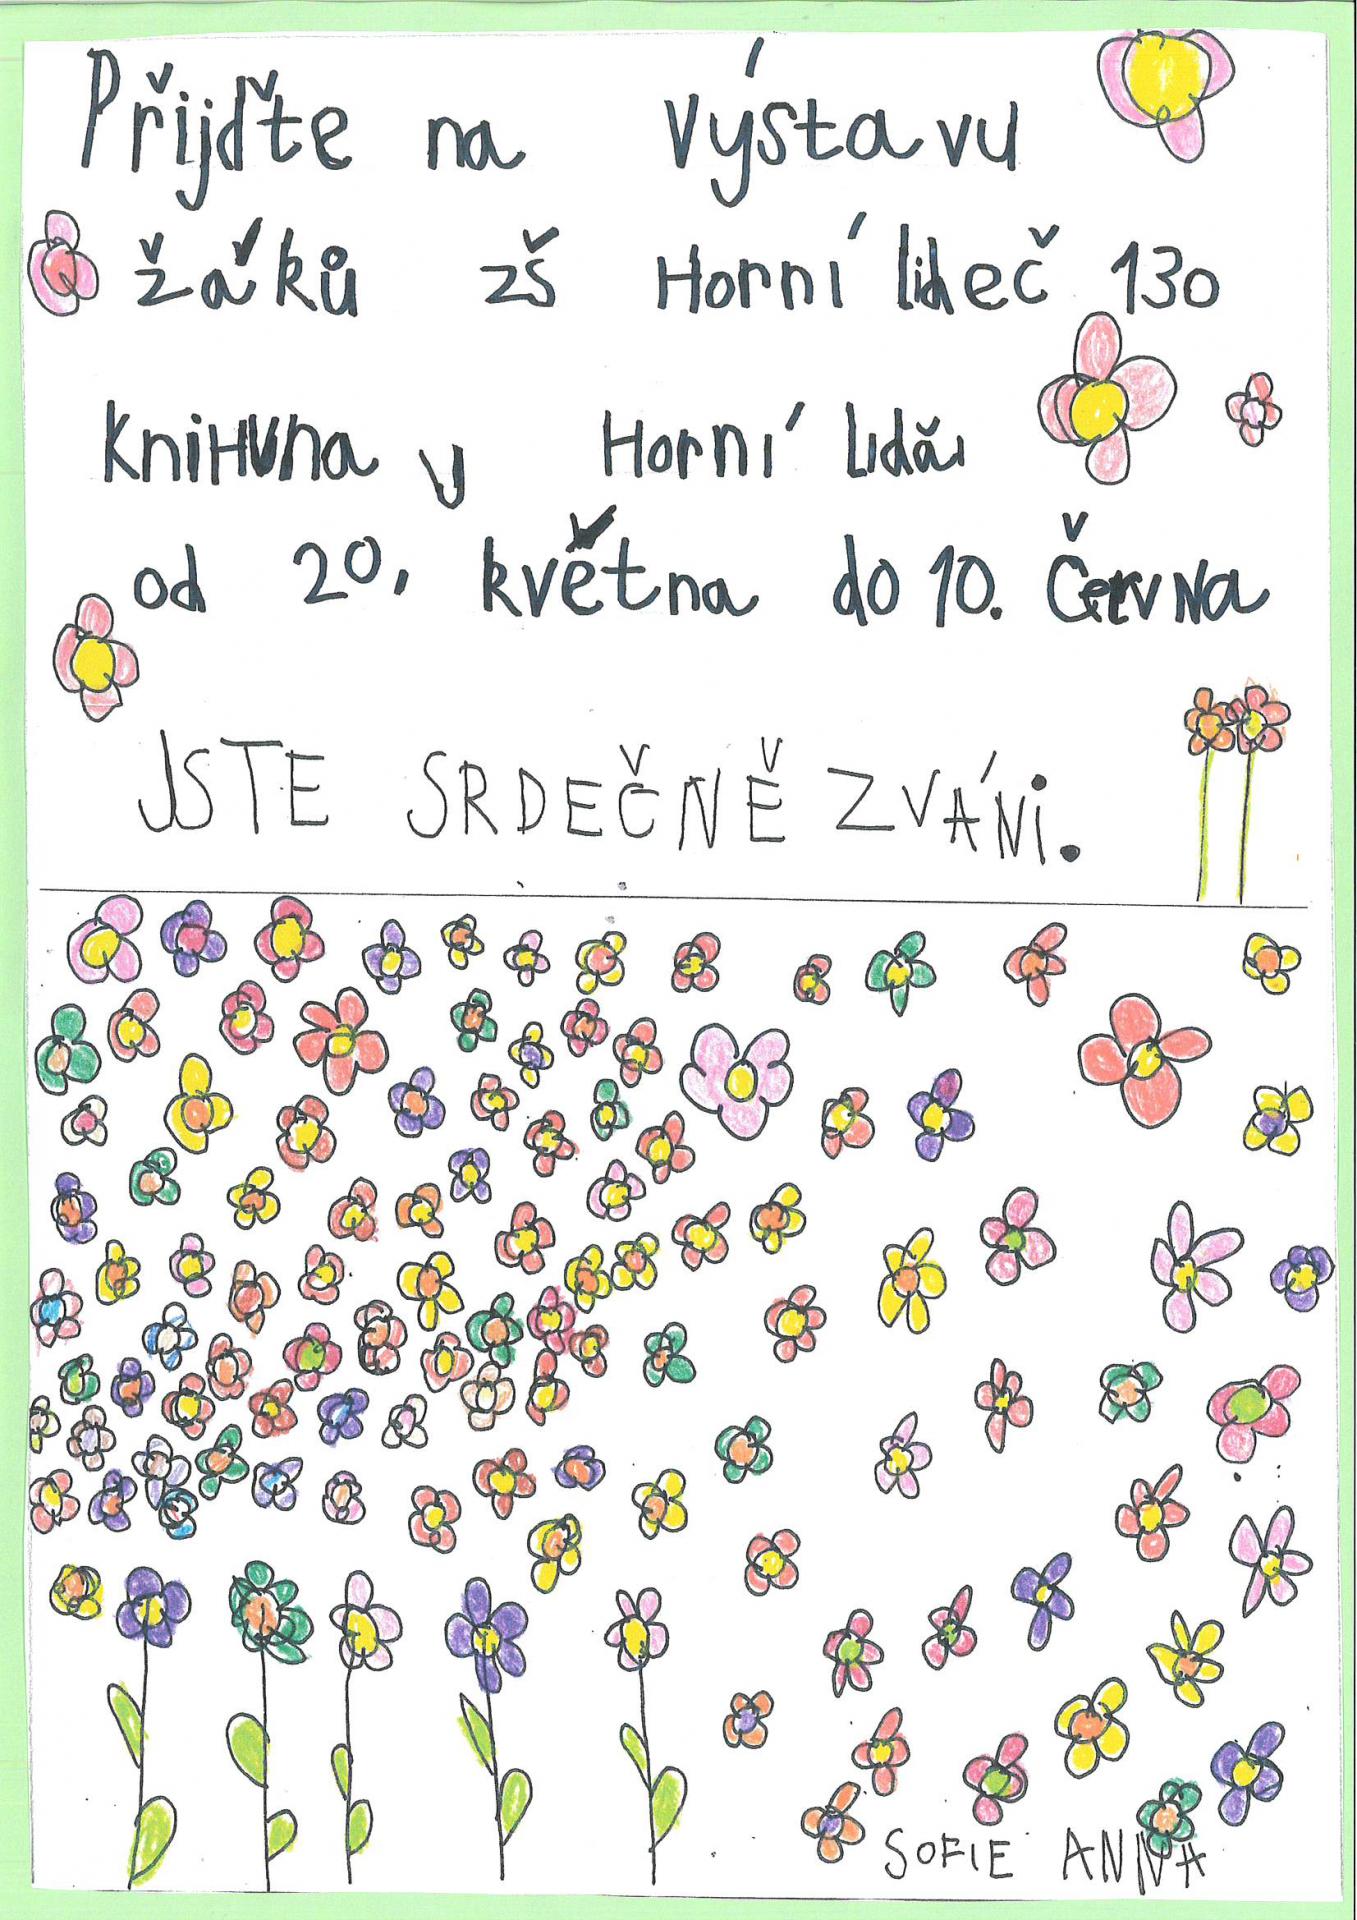 Přijďte na výstavu
žáků zš Horní lideč 130
KniHVna v Horní
od 20. května do 10. Června
JSTE SRDEČNĚ ZVÁNi.
SOFIE ANNA